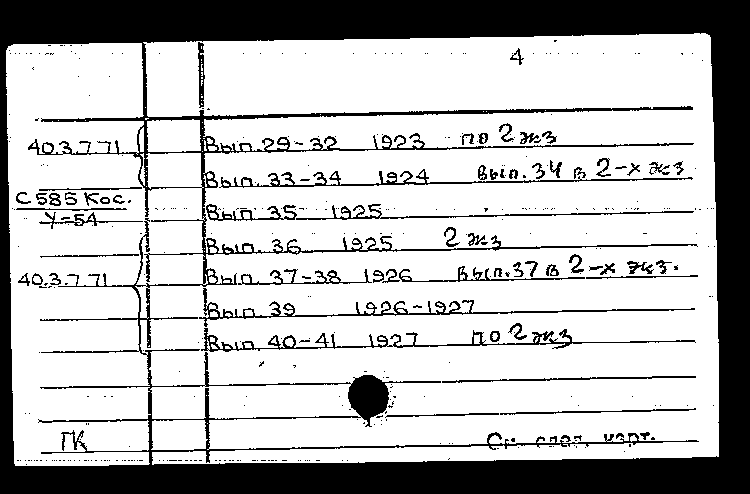 4
40.3.7.71 Вып. 29-32 1923 по 2 экз
Вып. 33-34 1924 Вып. 34 в 2-х экз
С 585 Кос.
У-54
Вып. 35 1925
Вып. 36 1925 2 экз
40.3.7.71 Вып. 37-38 1926 Вып. 37 в 2-х экз.
Вып. 39 1926-1927
Вып. 40-41 1927 по 2 экз
ГК См. след. карт.